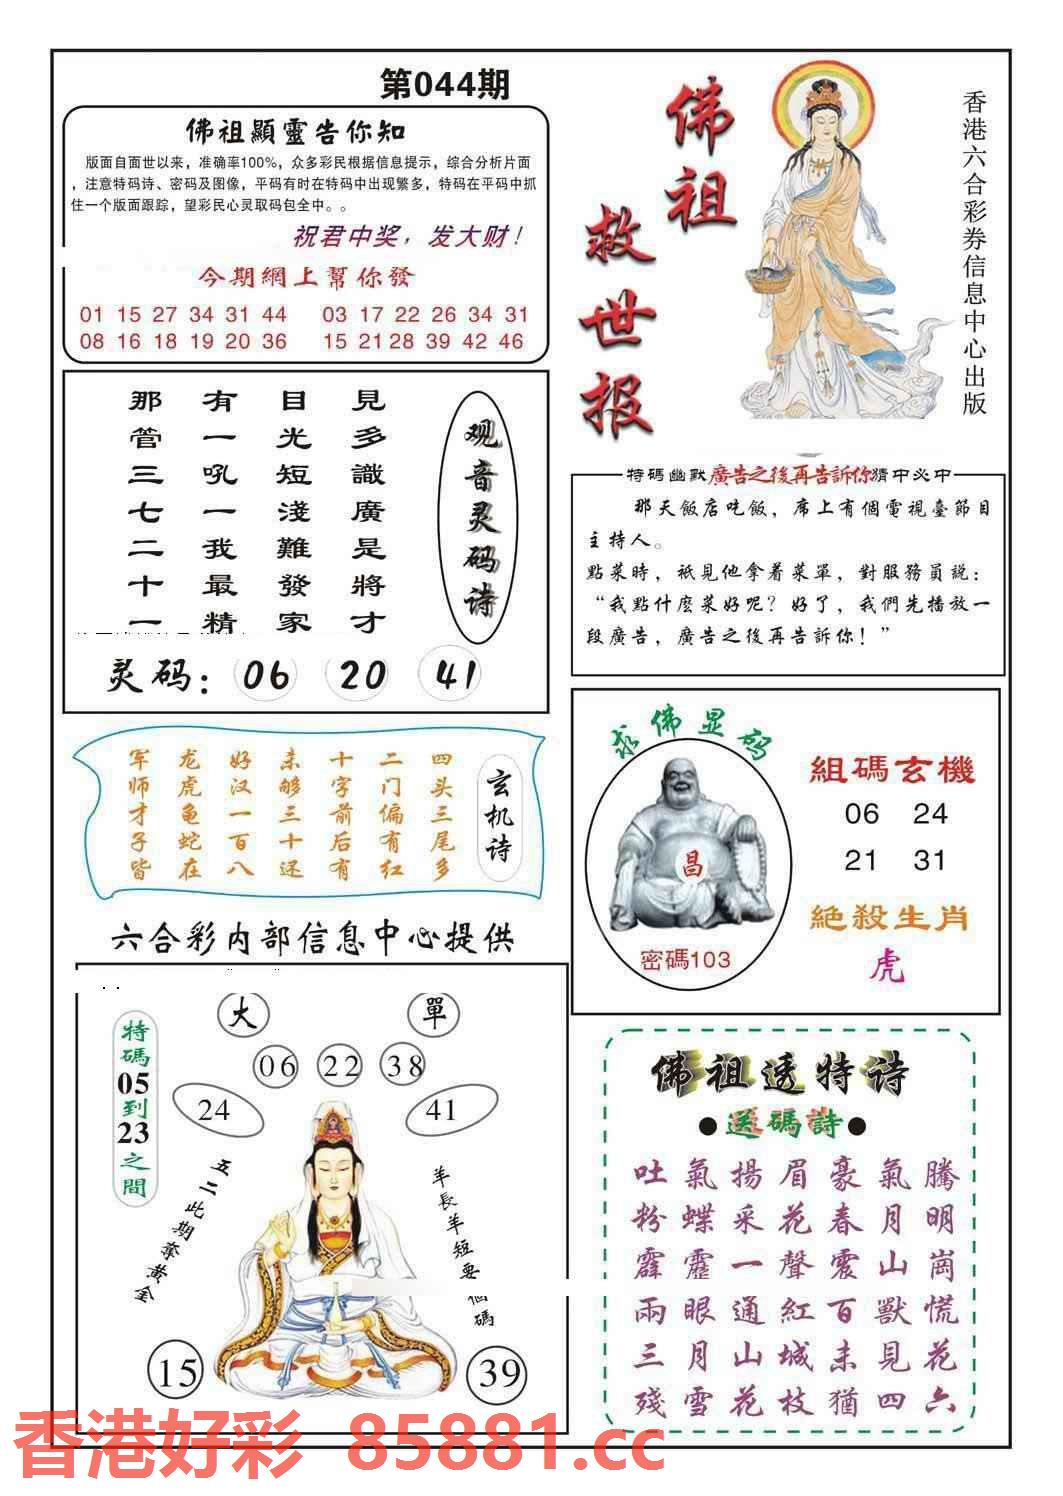 第044期
佛祖顯靈告你知
版面自面世以来，准确率100%，众多彩民根据信息提示，综合分析片面
，注意特码诗、密码及图像，平码有时在特码中出现繁多，特码在平码中抓
住一个版面跟踪，望彩民心灵取码包全中。。
祝君中奖，发大财！
今期網上幫你發
01 15 27 34 31 44 03 17 22 26 34 31
08 16 18 19 20 36 15 21 28 39 42 46
佛祖
救世报
香港六合彩券信息中心出版
观音灵码诗
見多識廣是將才
目光短淺難發家
有一吼一我最精
那管三七二十一
灵码：06 20 41
特碼幽默廣告之後再告訴你猜中必中
那天飯店吃飯，席上有個電視臺節目
主持人。
點菜時，衹見他拿着菜單，對服務員説：
“我點什麽菜好呢？好了，我們先播放一
段廣告，廣告之後再告訴你！”
玄机诗
四头三尾多
二门偏有红
十字前后有
未够三十还
好汉一百八
龙虎龟蛇在
军师才子皆
求佛显码
昌
密碼103
組碼玄機
06 24
21 31
絶殺生肖
虎
六合彩内部信息中心提供
大 單
06 22 38
24 41
特碼05到23之間
五二此期奪黄金
羊長羊短要個碼
15 39
佛祖透特诗
●送碼詩●
吐氣揚眉豪氣騰
粉蝶采花春月明
霹靂一聲震山崗
兩眼通紅百獸慌
三月山城未見花
殘雪花枝猶四六
香港好彩 85881.cc